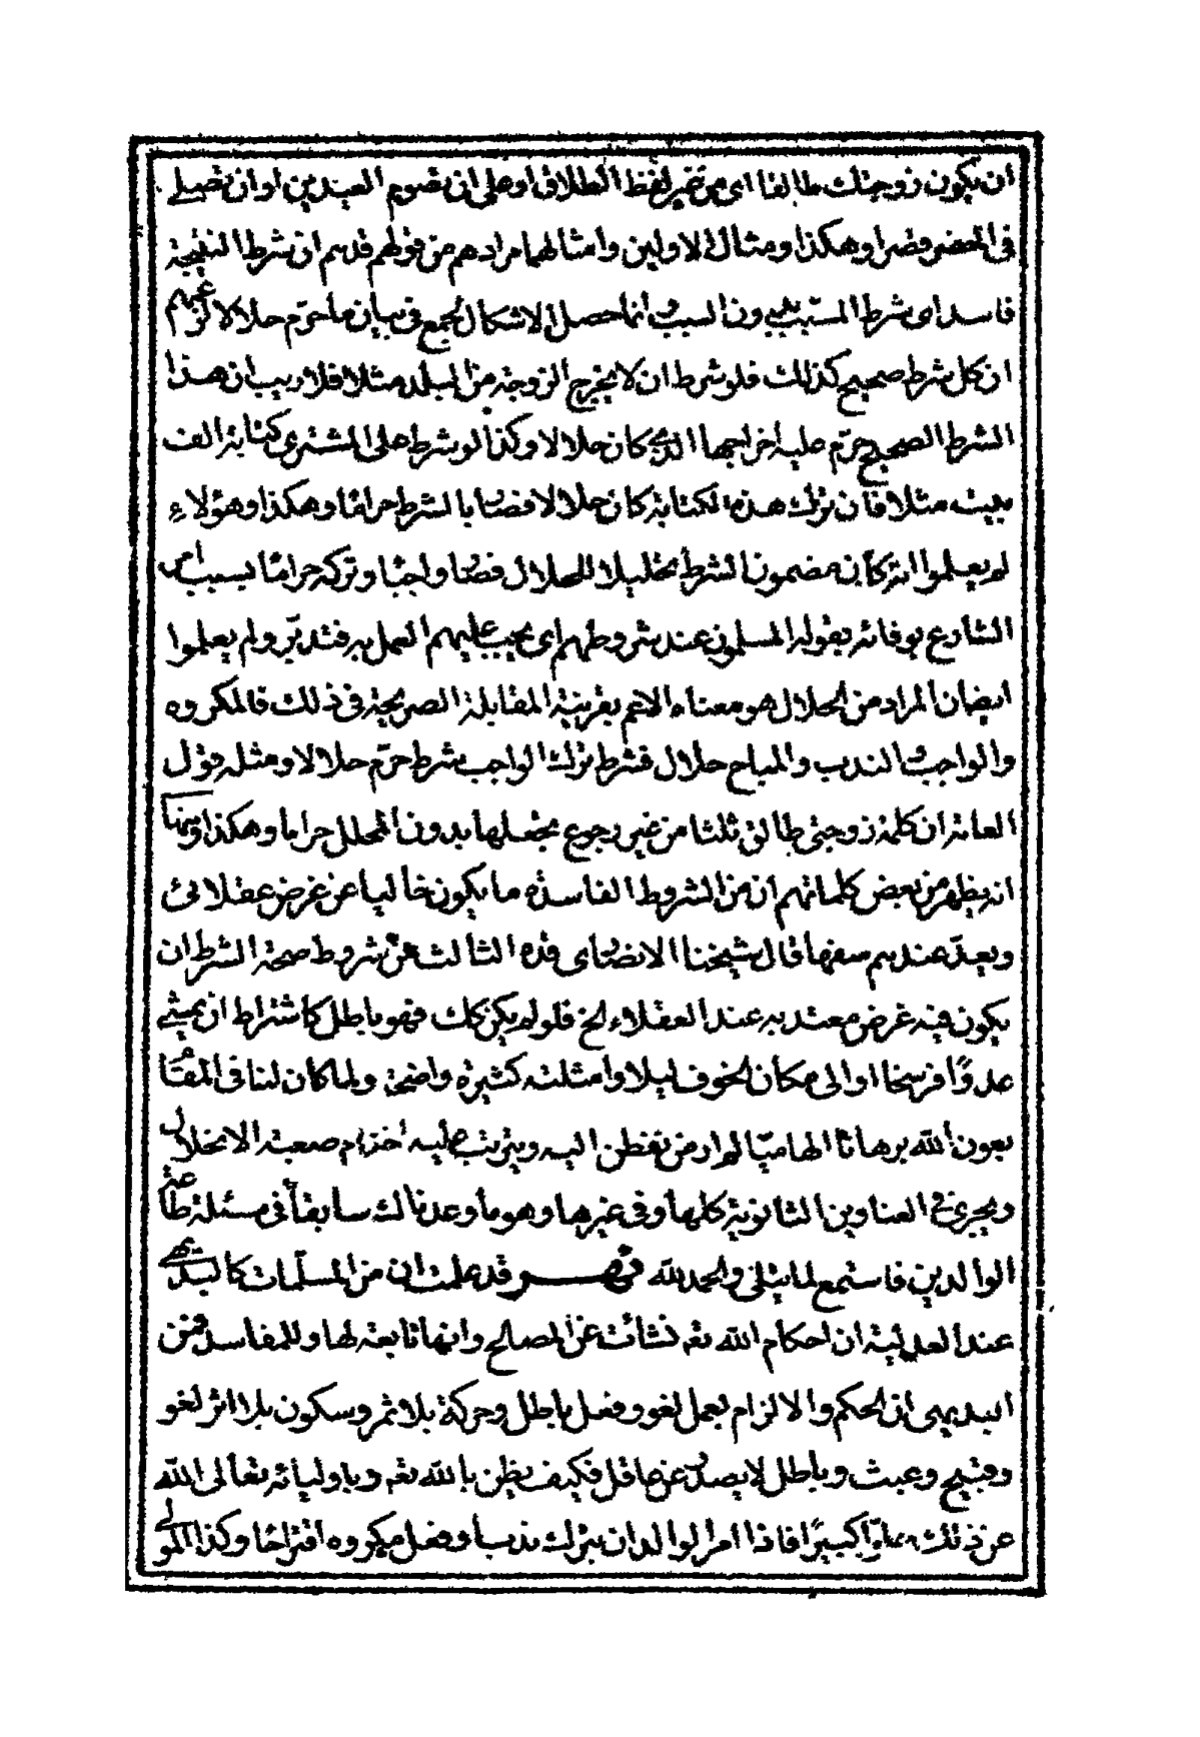 ان يكون زوجتك طالقا اى من غير لفظ الطلاق او على ان تصوم العيدين او ان تصلى
فى الحضر قصرا وهكذا ومثال الاولين وامثالهما مرادهم من قولهم قدهم ان شرط النتيجة
فاسد اى شرط المسبب بدون السبب وانما حصل الاشكال للجمع فى بيان ما حرّم حلالا لزعمهم
ان كل شرط صحيح كذلك فلو شرط ان لا يخرج الزوجة من البلد مثلا فلا ريب ان هذا
الشرط الصحيح حرّم عليه اخراجها الذى كان حلالا وكذا لو شرط على المشترى كتابة الف
بيت مثلا فان ترك هذه الكتابة كان حلالا فصار بالشرط حراما وهكذا وهؤلاء
لم يعلموا انه كان مضمون الشرط تحليلا للحلال فصار واجبا وتركه حراما بسبب امر
الشارع بوفائه بقوله المسلمون عند شروطهم اى يجب عليهم العمل به فتدبّر ولم يعلموا
ايضا ان المراد من الحلال هو معناه الاعم بقرينة المقابلة الصريحة فى ذلك فالمكروه
والواجب والندب والمباح حلال فشرط ترك الواجب شرط حرّم حلالا ومثله قول
العامة ان كلمة زوجتى طالق ثلثا من غير رجوع يجعلها بدون المحلل حراما وهكذا ومنها
انه يظهر من بعض كلماتهم ان من الشروط الفاسدة ما يكون خاليا عن غرض عقلائى
ويعدّ عندهم سفها قال شيخنا الانصارى قده الثالث من شروط صحة الشرط ان
يكون فيه غرض معتد به عند العقلاء الخ فلو لم يكن كك فهو باطل كاشتراط ان يمشى
عدوًا فرسخا او الى مكان الخوف ليلا وامثلته كثيرة واضحة ولما كان لنا فى المقام
بعون الله برهانا الهاميّا لم ار من تفطن اليه ويترتب عليه اخذ تام صعبة الانحلال
ويجرى فى العناوين الثانوية كلها وفى غيرها وهو ما وعدناك سابقاً فى مسئلة طاعة
الوالدين فاستمع لما يتلى والحمد لله فنقول قد علمت ان من المسلّمات كالبديهى
عند العدلية ان احكام الله تعه نشائت عن المصالح وانها تابعة لها وللمفاسد فمن
البديهى ان الحكم والالزام بعمل لغو وفعل باطل وحركة بلا ثمر وسكون بلا اثر لغو
وقبيح وعبث وباطل لا يصدر عن عاقل فكيف يظن بالله تعه وباوليائه تعالى الله
عن ذلك علوّا كبيرًا فاذا امر الوالدان بترك ندب او فعل مكروه اقتراحا وكذا المولى